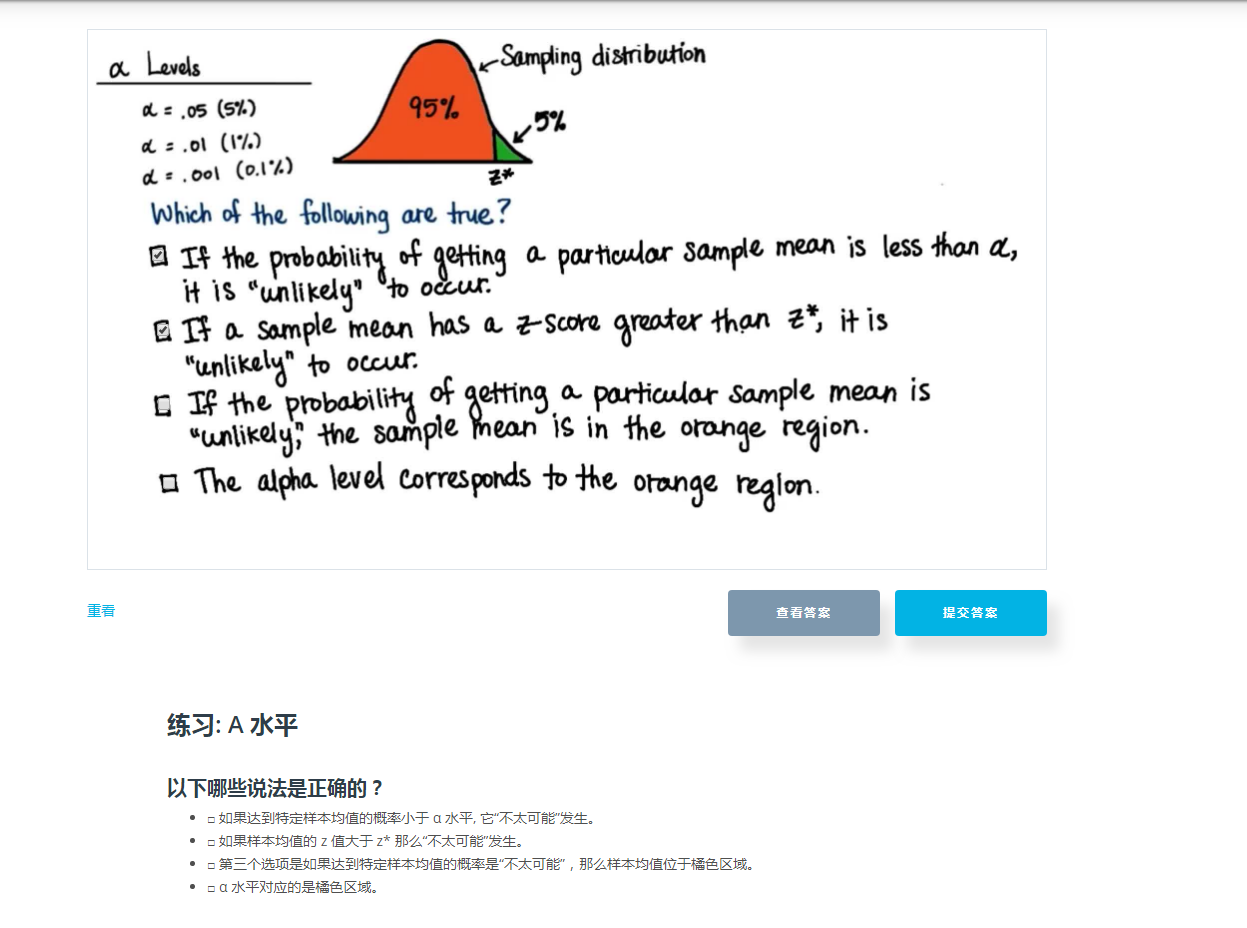 α Levels
α = .05 (5%)
α = .01 (1%)
α = .001 (0.1%)
Sampling distribution
95%
5%
z*
Which of the following are true?
If the probability of getting a particular sample mean is less than α,
it is "unlikely" to occur.
If a sample mean has a z-score greater than z*, it is
"unlikely" to occur.
If the probability of getting a particular sample mean is
"unlikely," the sample mean is in the orange region.
The alpha level corresponds to the orange region.
重看
查看答案
提交答案
练习: Α 水平
以下哪些说法是正确的？
如果达到特定样本均值的概率小于 α 水平, 它“不太可能”发生。
如果样本均值的 z 值大于 z* 那么“不太可能”发生。
第三个选项是如果达到特定样本均值的概率是“不太可能”，那么样本均值位于橘色区域。
α 水平对应的是橘色区域。